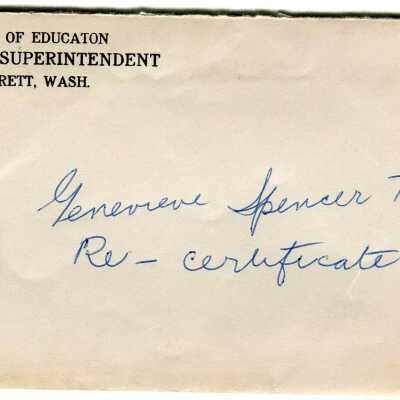 OF EDUCATON
SUPERINTENDENT
RETT, WASH.
Genevieve Spencer
Re - certificate